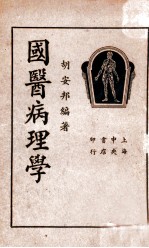 胡安邦編著
國醫病理學
上海
中央
書店
印行